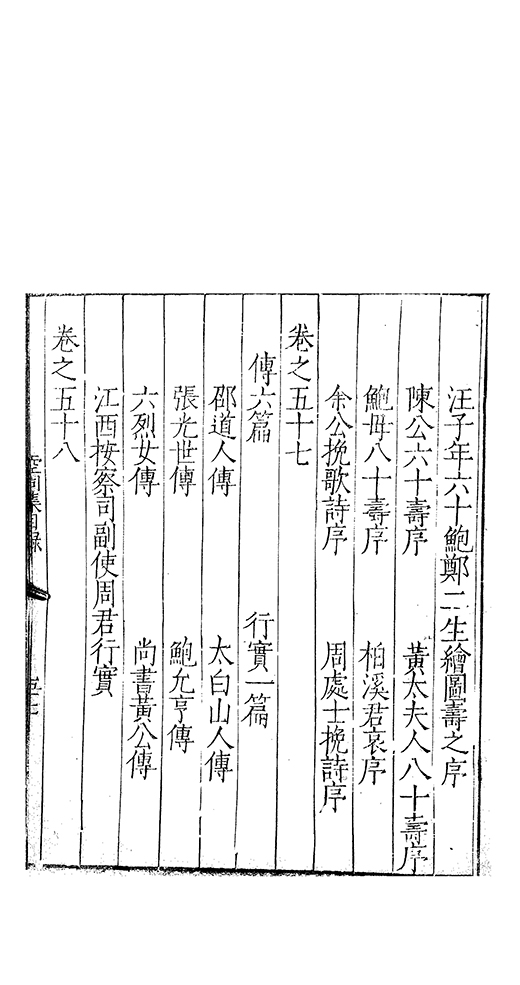 汪子年六十鮑鄭二生繪圖壽之序
陳公六十壽序　黃太夫人八十壽序
鮑母八十壽序　柏溪君哀序
余公挽歌詩序　周處士挽詩序
卷之五十七
傳六篇　行實一篇
邵道人傳　太白山人傳
張光世傳　鮑允亨傳
六烈女傳　尚書黃公傳
江西按察司副使周君行實
卷之五十八
空同集目錄